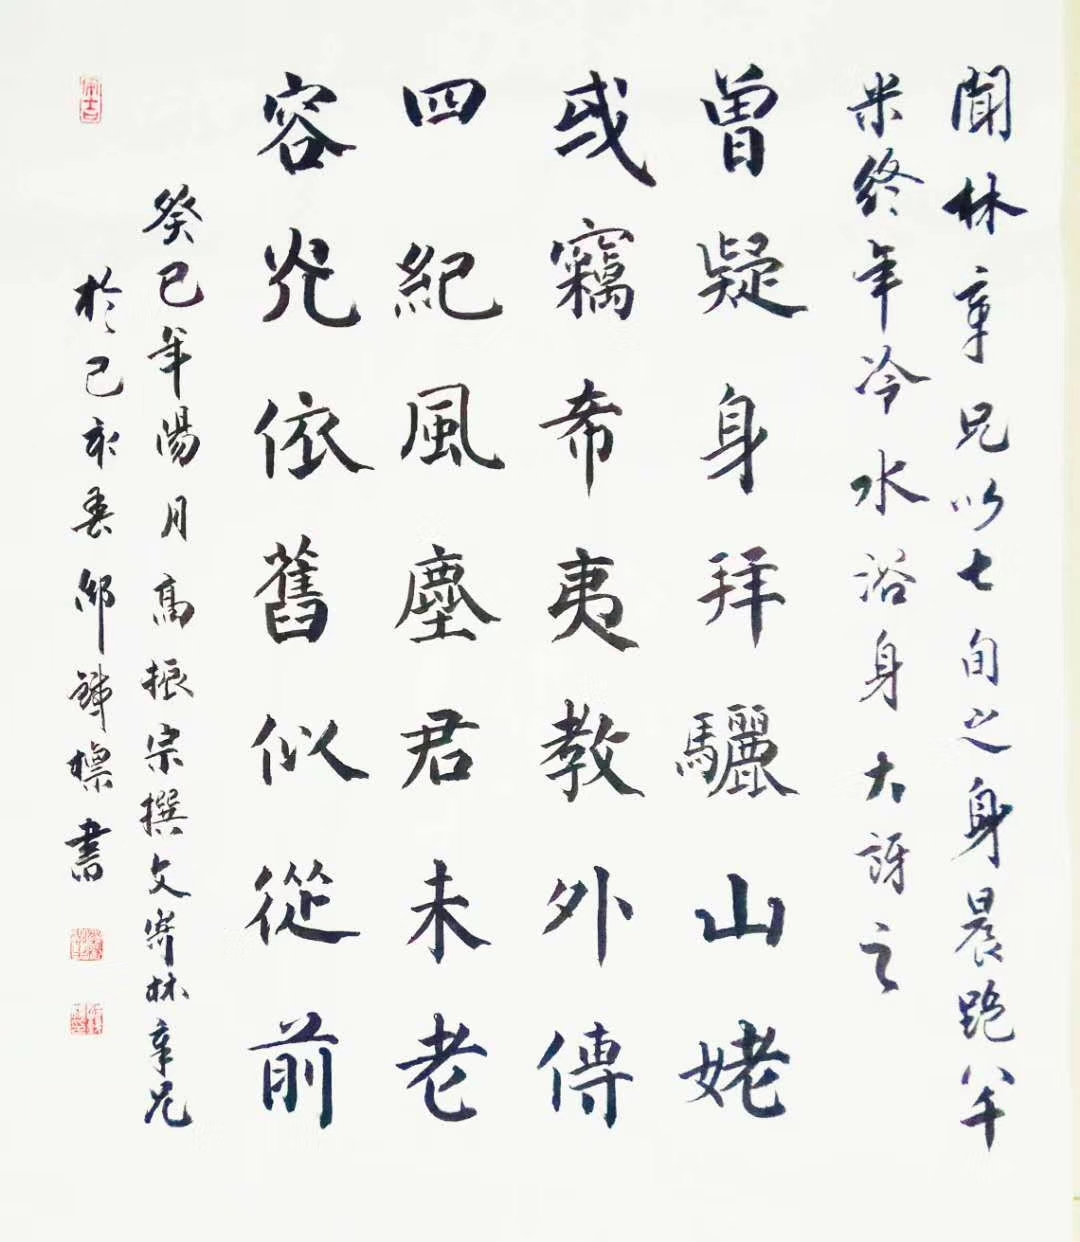 聞林辛兄以七旬之身晨跑八千
米終年冷水浴身大訝之
曾疑身拜驪山姥
或竊希夷教外傳
四紀風塵君未老
容光依舊似從前
癸巳年陽月高振宗撰文寄林辛兄
於己亥春邱 標書